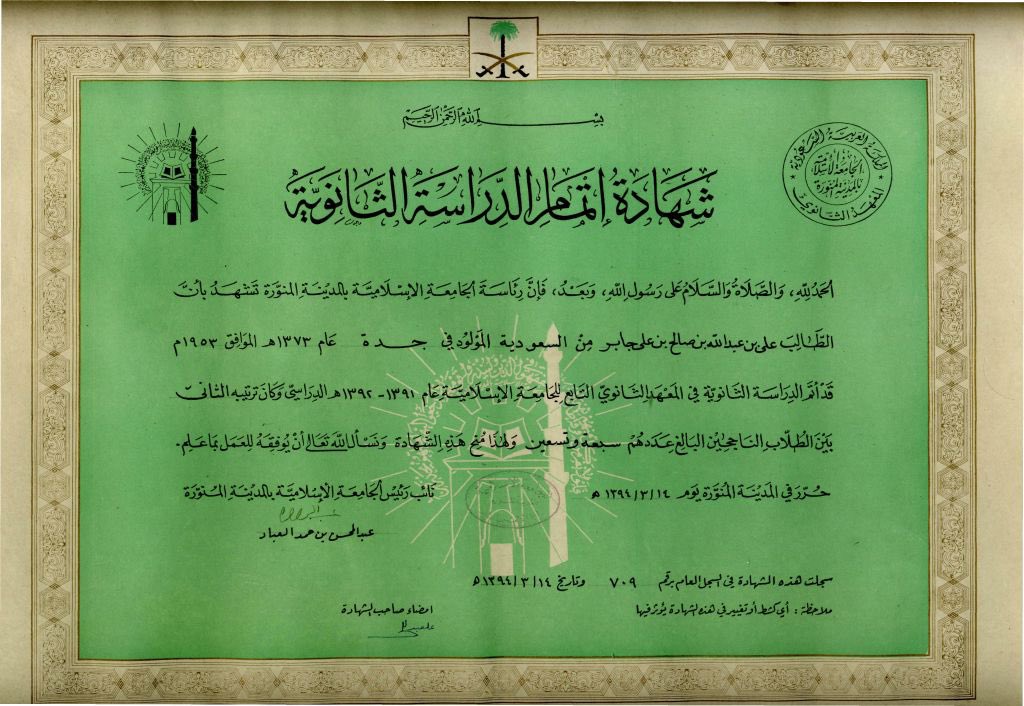 بسم الله الرحمن الرحيم
المملكة العربية السعودية
الجامعة الإسلامية
بالمدينة المنورة
المعهد الثانوي
شهادة إتمام الدراسة الثانوية
الحمد لله، والصلاة والسلام على رسول الله، وبعد، فإن رئاسة الجامعة الإسلامية بالمدينة المنورة تشهد بأن
الطالب علي بن عبدالله بن صالح بن علي جابر من السعودية المولود في جدة عام ١٣٧٣هـ الموافق ١٩٥٣م
قد أتم الدراسة الثانوية في المعهد الثانوي التابع للجامعة الإسلامية عام ١٣٩١ - ١٣٩٢هـ الدراسي وكان ترتيبه الثاني
بين الطلاب الناجحين البالغ عددهم سبعة وتسعين ولهذا منح هذه الشهادة ونسأل الله تعالى أن يوفقه للعمل بما علم.
حرر في المدينة المنورة يوم ١٣٩٤/٣/١٤ هـ
نائب رئيس الجامعة الإسلامية بالمدينة المنورة
عبدالمحسن بن حمد العباد
سجلت هذه الشهادة في السجل العام برقم ٧٠٩ وتاريخ ١٣٩٤/٣/١٤هـ
ملاحظة: أي كشط أو تغيير في هذه الشهادة يؤثر فيها
امضاء صاحب الشهادة